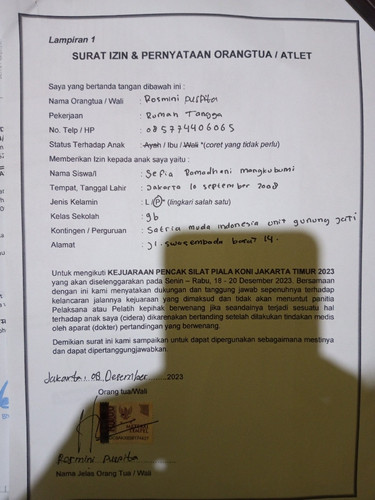 Lampiran 1
SURAT IZIN & PERNYATAAN ORANGTUA / ATLET
Saya yang bertanda tangan dibawah ini :
Nama Orangtua / Wali : Rosmini puspita
Pekerjaan : Rumah Tangga
No. Telp / HP : 085774406065
Status Terhadap Anak : Ayah / Ibu / Wali *(coret yang tidak perlu)
Memberikan Izin kepada anak saya yaitu :
Nama Siswa/i : Sefia Ramadhani mangkubumi
Tempat, Tanggal Lahir : Jakarta 10 september 2008
Jenis Kelamin : L / P * (lingkari salah satu)
Kelas Sekolah : 9b
Kontingen / Perguruan : Satria muda indonesia unit gunung jati
Alamat : Jl. swasembada barat 14.
Untuk mengikuti KEJUARAAN PENCAK SILAT PIALA KONI JAKARTA TIMUR 2023
yang akan diselenggarakan pada Senin – Rabu, 18 - 20 Desember 2023. Bersamaan
dengan ini kami menyatakan dukungan dan tanggung jawab sepenuhnya terhadap
kelancaran jalannya kejuaraan yang dimaksud dan tidak akan menuntut panitia
Pelaksana atau Pelatih kepihak berwenang jika seandainya terjadi sesuatu hal
terhadap anak saya (cidera) dikarenakan bertanding setelah dilakukan tindakan medis
oleh aparat (dokter) pertandingan yang berwenang.
Demikian surat ini kami sampaikan untuk dapat dipergunakan sebagaimana mestinya
dan dapat dipertanggungjawabkan.
Jakarta, 08 Desember 2023
Orang tua/Wali
TEMPEL
Rosmini puspita
Nama Jelas Orang Tua / Wali